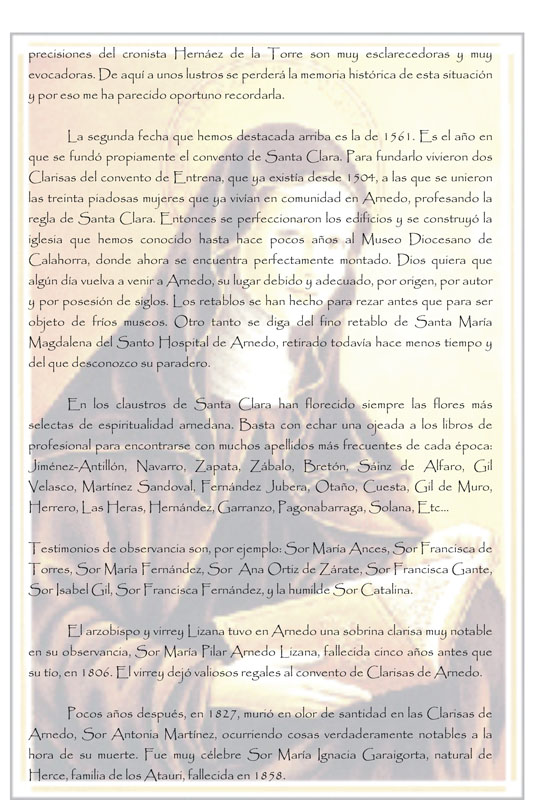 precisiones del cronista Hernáez de la Torre son muy esclarecedoras y muy
evocadoras. De aquí a unos lustros se perderá la memoria histórica de esta situación
y por eso me ha parecido oportuno recordarla.
La segunda fecha que hemos destacada arriba es la de 1561. Es el año en
que se fundó propiamente el convento de Santa Clara. Para fundarlo vivieron dos
Clarisas del convento de Entrena, que ya existía desde 1504, a las que se unieron
las treinta piadosas mujeres que ya vivían en comunidad en Arnedo, profesando la
regla de Santa Clara. Entonces se perfeccionaron los edificios y se construyó la
iglesia que hemos conocido hasta hace pocos años al Museo Diocesano de
Calahorra, donde ahora se encuentra perfectamente montado. Dios quiera que
algún día vuelva a venir a Arnedo, su lugar debido y adecuado, por origen, por autor
y por posesión de siglos. Los retablos se han hecho para rezar antes que para ser
objeto de fríos museos. Otro tanto se diga del fino retablo de Santa María
Magdalena del Santo Hospital de Arnedo, retirado todavía hace menos tiempo y
del que desconozco su paradero.
En los claustros de Santa Clara han florecido siempre las flores más
selectas de espiritualidad arnedana. Basta con echar una ojeada a los libros de
profesional para encontrarse con muchos apellidos más frecuentes de cada época:
Jiménez-Antillón, Navarro, Zapata, Zábalo, Bretón, Sáinz de Alfaro, Gil
Velasco, Martínez Sandoval, Fernández Jubera, Otaño, Cuesta, Gil de Muro,
Herrero, Las Heras, Hernández, Garranzo, Pagonabarraga, Solana, Etc...
Testimonios de observancia son, por ejemplo: Sor María Ances, Sor Francisca de
Torres, Sor María Fernández, Sor Ana Ortiz de Zárate, Sor Francisca Gante,
Sor Isabel Gil, Sor Francisca Fernández, y la humilde Sor Catalina.
El arzobispo y virrey Lizana tuvo en Arnedo una sobrina clarisa muy notable
en su observancia, Sor María Pilar Arnedo Lizana, fallecida cinco años antes que
su tío, en 1806. El virrey dejó valiosos regales al convento de Clarisas de Arnedo.
Pocos años después, en 1827, murió en olor de santidad en las Clarisas de
Arnedo, Sor Antonia Martínez, ocurriendo cosas verdaderamente notables a la
hora de su muerte. Fue muy célebre Sor María Ignacia Garaigorta, natural de
Herce, familia de los Atauri, fallecida en 1858.